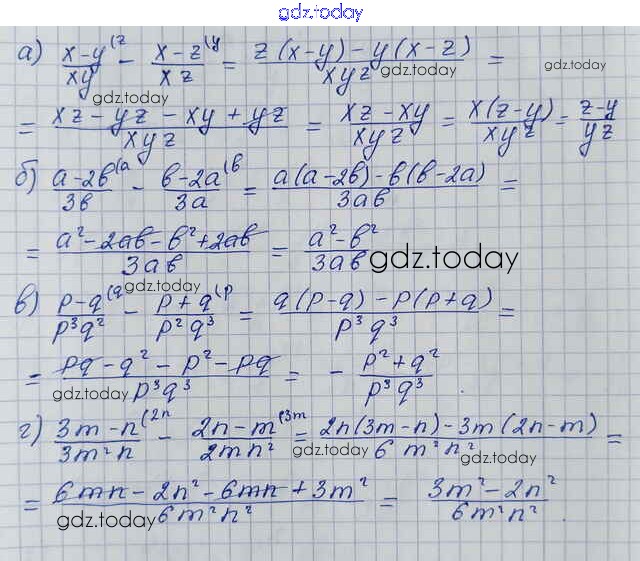 gdz.today
а) (x-y)/(xy) (z - (x-z)/(xz) (y = (z(x-y)-y(x-z))/(xyz) =
gdz.today gdz.today
= (xz-yz-xy+yz)/(xyz) = (xz-xy)/(xyz) = (x(z-y))/(xyz) = (z-y)/(yz)
б) (a-2b)/(3b) (a - (b-2a)/(3a) (b = (a(a-2b)-b(b-2a))/(3ab) =
= (a²-2ab-b²+2ab)/(3ab) = (a²-b²)/(3ab)
gdz.today
gdz.today
в) (p-q)/(p³q²) (q - (p+q)/(p²q³) (p = (q(p-q)-p(p+q))/(p³q³) =
= (pq-q²-p²-pq)/(p³q³) = - (p²+q²)/(p³q³).
gdz.today gdz.today
г) (3m-n)/(3m²n) (2n - (2n-m)/(2mn²) (3m = (2n(3m-n)-3m(2n-m))/(6m²n²) =
gdz.today gdz.today
= (6mn-2n²-6mn+3m²)/(6m²n²) = (3m²-2n²)/(6m²n²).
gdz.today gdz.today